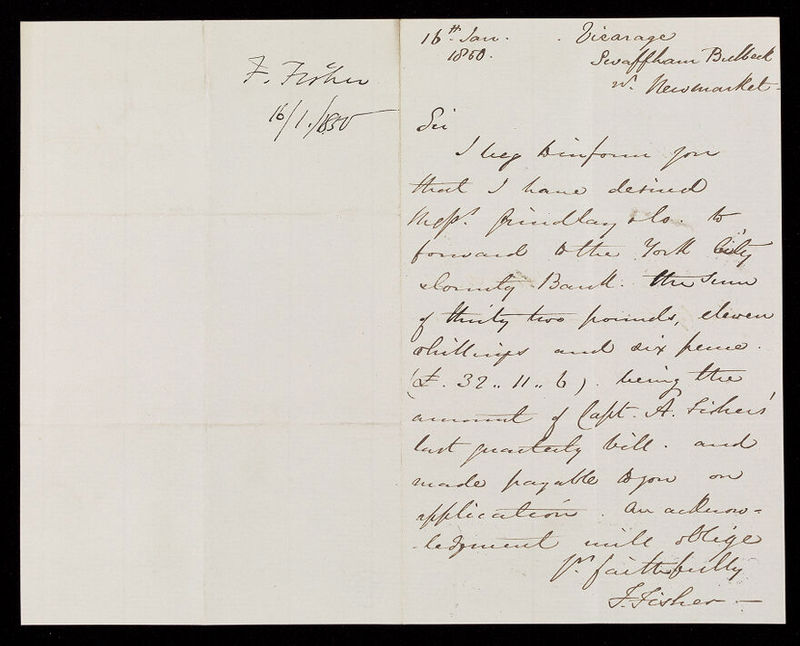 F. Fisher
16/1./1850
16th Jan. Vicarage
1850. Swaffham Bulbeck
nr. Newmarket -
Sir
I beg to inform you
that I have desired
Messrs. Grindlay & Co. to
forward to the York City
& County Bank. the sum
of thirty two pounds, eleven
shillings and six pence.
(£. 32 .. 11 .. 6). being the
amount of Capt. A. Fishers'
last quarterly bill. and
made payable to you on
application. An acknow-
-ledgment will oblige
yrs. faithfully
F. Fisher -